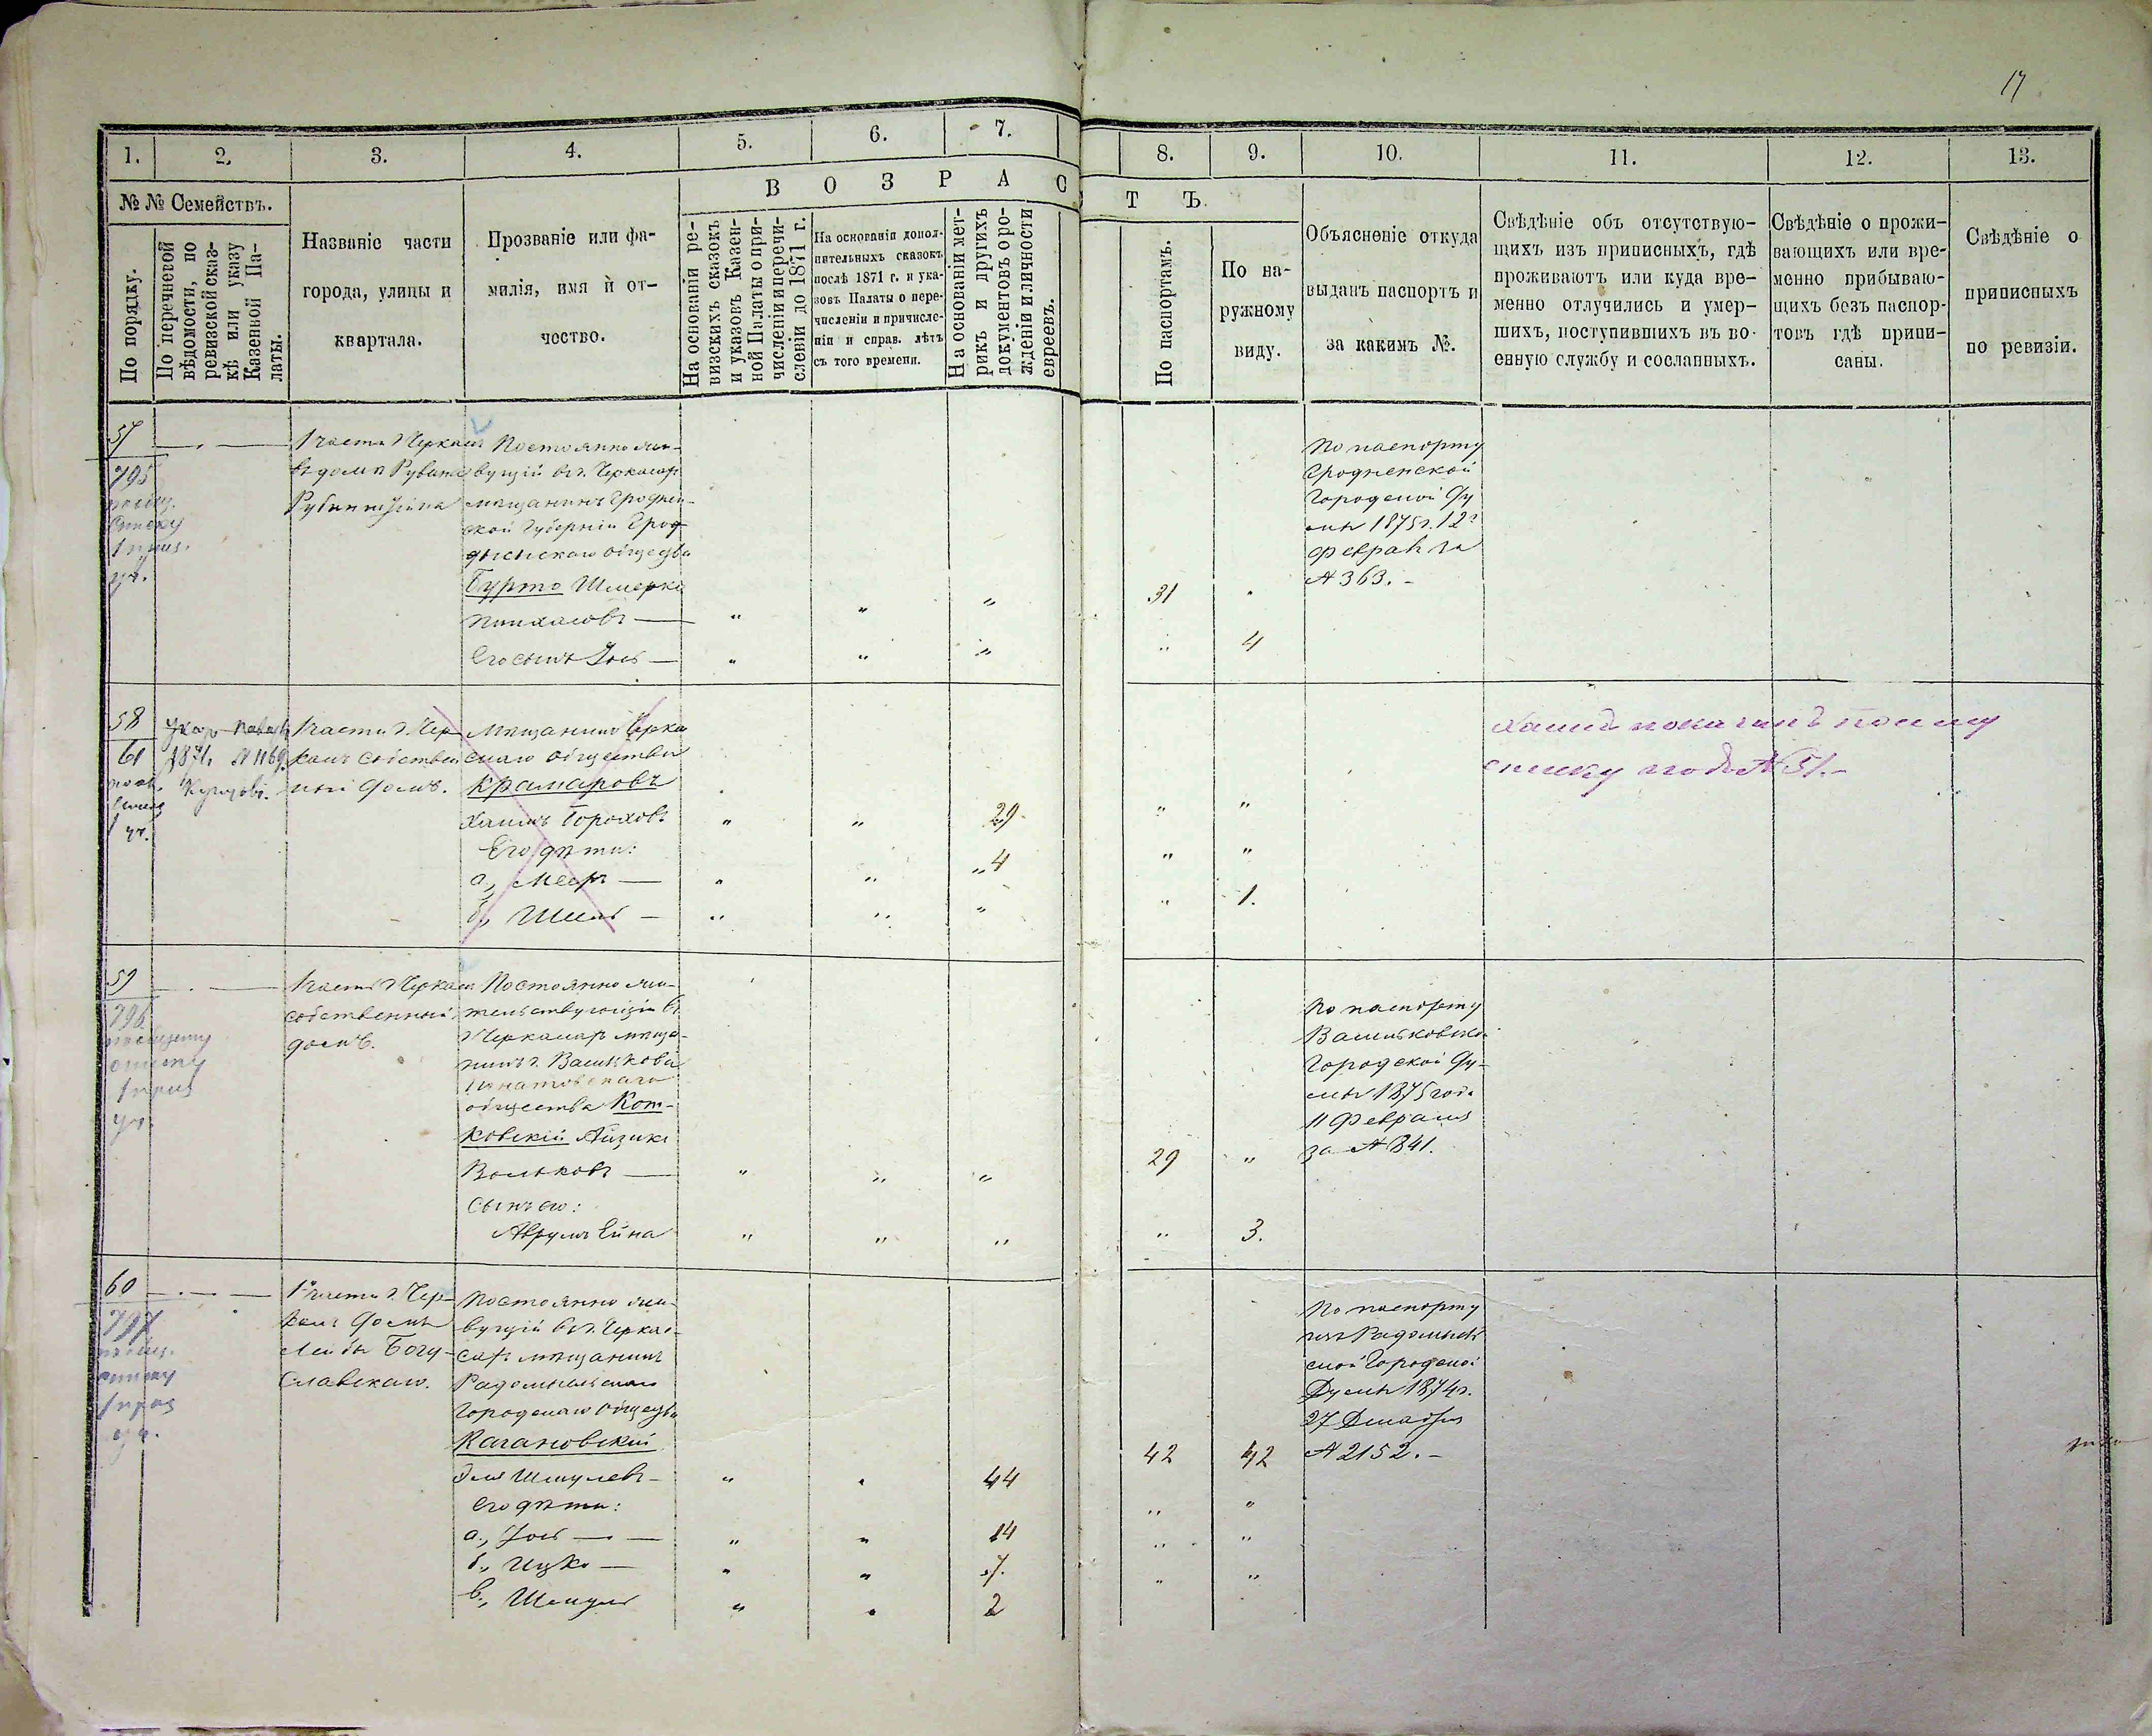 17
1. 2. 3. 4. 5. 6. 7. 8. 9. 10. 11. 12. 13.
№ № Семействъ.
По порядку.
По перечневой
вѣдомости, по
ревизской сказ-
кѣ или указу
Казенной Па-
латы.
Названіе части
города, улицы и
квартала.
Прозваніе или фа-
милія, имя и от-
чество.
В О З Р А С Т Ъ.
На основаніи ре-
визскихъ сказокъ
и указовъ Казен-
ной Палаты о при-
численіи и перечи-
сленіи до 1871 г.
На основаніи допол-
нительныхъ сказокъ
послѣ 1871 г. и ука-
зовъ Палаты о пере-
численіи и причисле-
ніи и справ. лѣтъ
съ того времени.
На основаніи мет-
рикъ и другихъ
документовъ о ро-
жденіи и личности
евреевъ.
По паспортамъ.
По на-
ружному
виду.
Объясненіе откуда
выданъ паспортъ и
за какимъ №.
Свѣдѣніе объ отсутствую-
щихъ изъ приписныхъ, гдѣ
проживаютъ или куда вре-
менно отлучились и умер-
шихъ, поступившихъ въ во-
енную службу и сосланныхъ.
Свѣдѣніе о прожи-
вающихъ или вре-
менно прибываю-
щихъ безъ паспор-
товъ гдѣ припи-
саны.
Свѣдѣніе о
приписныхъ
по ревизіи.
57
795
списку
1 приз.
уч.
1 части г. Черкасъ
въ домѣ Рувина
Постоянно жи-
вущій въ г. Черкасахъ
мѣщанинъ Гроднен-
ской Губерніи Грод-
ненскаго общества
Бурто Шмерко
Пинхасовъ — " " " 31 "
Его сынъ Іось — " " " " 4
По паспорту
Гродненской
Городской Ду-
мы 1875 г. 12
февраля за
№ 363. –
58
61
1 уч.
Указ Палаты
1871 № 1169
1 части г. Чер-
касъ собствен-
ный домъ.
Мѣщанинъ Черка-
скаго общества
Крамаровъ
Хаимъ Бороховъ " " 29 " "
Его дѣти:
а., Мееръ — " " " 4 " "
б., Шмиль — " " " " 1.
Хаимъ показанъ по сему
списку подъ № 51. –
59
796
по общему
списку
1 приз
уч.
1 части г. Черкасъ
собственный
домъ.
Постоянно жи-
тельствующій въ
г. Черкасахъ мѣща-
нинъ г. Василькова
Игнатовскаго
общества Кот-
ковскій Айзикъ
Вольковъ — " " " 29 "
Сынъ его:
Аврумъ Ейна " " " " 3.
По паспорту
Васильковской
Городской Ду-
мы 1875 года
11 Февраля
за № 841.
60
797
списку
1 приз
уч.
1 части г. Чер-
касъ домъ
Лейбы Богу-
славскаго.
Постоянно жи-
вущій въ г. Черкас-
сахъ мѣщанинъ
Радомысльскаго
Городскаго общества
Кагановскій
Эля Шмулевъ — " " 44 42 42
Его дѣти:
а., Іось — " " 14 " "
б., Ицко — " " 7. " "
в., Шмуль " " 2 " "
По паспорту
изъ Радомысль-
ской Городской
Думы 1874 г.
27 Декабря
№ 2152. –